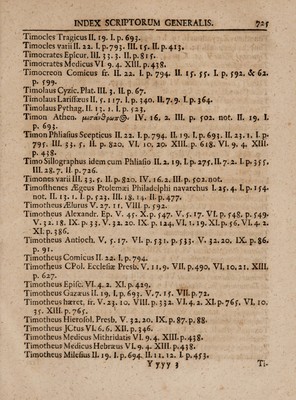 INDEX SCRIPTORUM GENERALIS. 725
Timocles Tragicus II. 19. I. p. 693.
Timocles varii II. 22. I. p. 793. III. 15. II. p. 413.
Timocrates Epicur. III. 33. 3. II. p. 815.
Timocrates Medicus VI. 9. 4. XIII. p. 438.
Timocreon Comicus fr. II. 22. I. p. 794. II. 15. 55. I. p. 592. & 62.
p. 599.
Timolaus Cyzic. Plat. III. 3. II. p. 67.
Timolaus Larissæus II. 5. 117. I. p. 340. II. 7. 9. I. p. 364.
Timolaus Pythag. II. 13. 1. I. p. 523.
Timon Athen. IV. 16. 2. III. p. 502. not. II. 19. I.
p. 693.
Timon Phliasius Scepticus II. 22. I. p. 794. II. 19. I. p. 693. II. 23. 1. I. p.
795. III. 33. 5. II. p. 820. VI. 10. 20. XIII. p. 618. VI. 9. 4. XIII.
p. 438.
Timo Sillographus idem cum Phliasio II. 2. 19. I. p. 275. II. 7. 2. I. p. 355.
III. 28. 7. II. p. 726.
Timones varii III. 33. 5. II. p. 820. IV. 16. 2. III. p. 502. not.
Timosthenes Ægeus Prolemæi Philadelphi navarchus I. 25. 4. I. p. 154.
not. II. 13. 1. I. p. 523. III. 18. 14. II. p. 477.
Timotheus Ælurus V. 27. 11. VIII. p. 592.
Timotheus Alexandr. Ep. V. 45. X. p. 547. V. 5. 17. VI. p. 548. p. 549.
V. 32. 18. IX. p. 35. V. 32. 20. IX. p. 124. VI. 1. 19. XI. p. 56. VI. 4. 2.
XI. p. 386.
Timotheus Antioch. V. 5. 17. VI. p. 531. p. 533. V. 32. 20. IX. p. 86.
p. 91.
Timotheus Comicus II. 22. I. p. 794.
Timotheus CPol. Ecclesiæ Presb. V. 11. 9. VII. p. 490. VI. 10. 21. XIII.
p. 627.
Timotheus Episc. VI. 4. 2. XI. p. 429.
Timotheus Gazæus II. 19. I. p. 693. V. 7. 15. VII. p. 72.
Timotheus hæret. fr. V. 23. 10. VIII. p. 332. VI. 4. 2. XI. p. 765. VI. 10.
35. XIII. p. 765.
Timotheus Hierosol. Presb. V. 32. 20. IX. p. 87. p. 88.
Timotheus JCtus VI. 6. 6. XII. p. 346.
Timotheus Medicus Mithridatis VI. 9. 4. XIII. p. 438.
Timotheus Medicus Hebræus VI. 9. 4. XIII. p. 438.
Timotheus Milesius II. 19. I. p. 694. II. 11. 12. I. p. 453.
Yyyy 3 Ti-